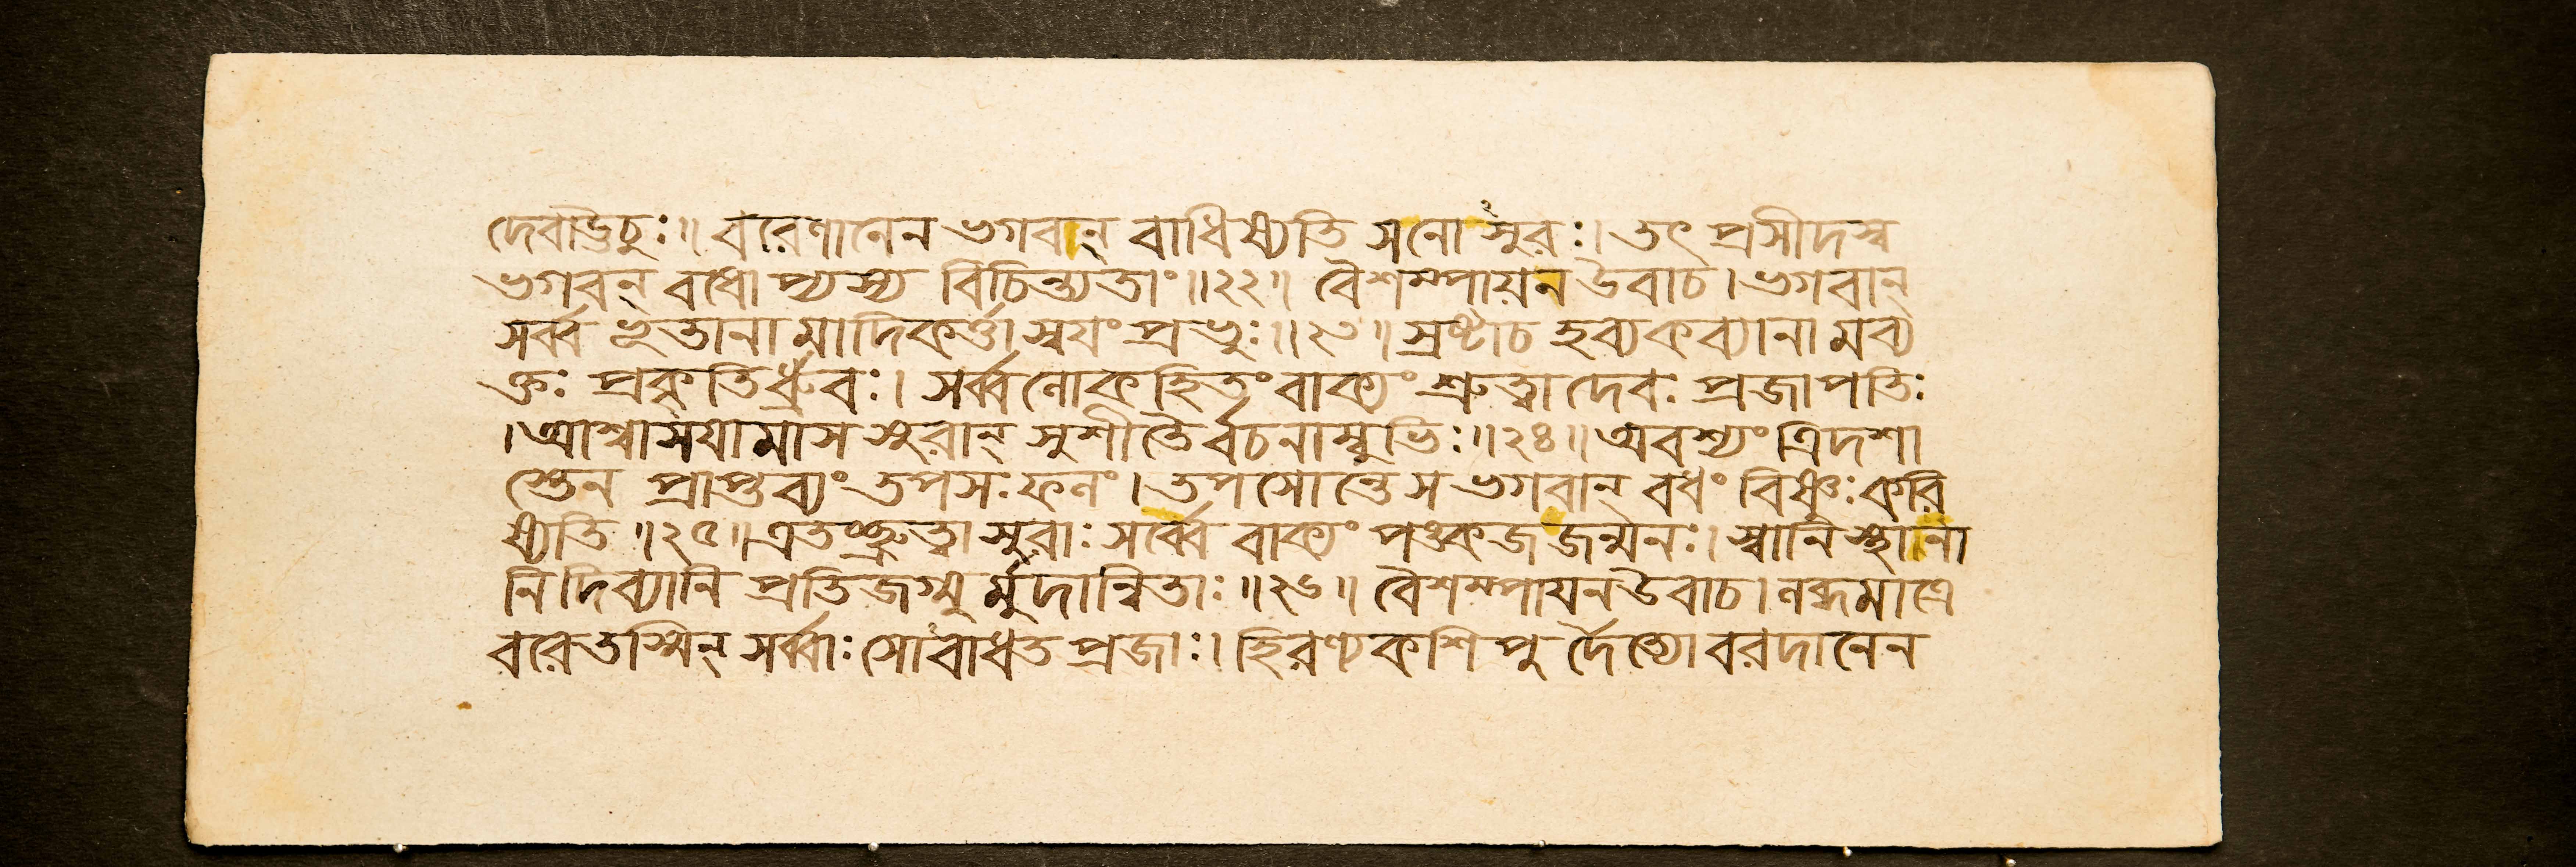 দেবাঊচুঃ॥ বরেণানেন ভগবান্ বাধিষ্যতি সনো সুরঃ। তৎ প্রসীদস্ব
ভগবন্ বধোপ্যস্য বিচিন্ত্যতাং॥২২॥ বৈশম্পায়ন উবাচ। ভগবান্
সর্ব্ব ভূতানামাদিকর্ত্তা স্বযং প্রভুঃ॥২৩॥ স্রষ্টাচ হব্যকব্যানামব্য
ক্তঃ প্রকৃতির্ধ্রুবঃ। সর্ব্বলোকহিতং বাক্যং শ্রুত্বা দেবঃ প্রজাপতিঃ
।আশ্বাসযামাস সুরান্ সুশীতৈর্বচনাম্বুভিঃ॥২৪॥ অবশ্যং ত্রিদশা
স্তেন প্রাপ্তব্যং তপসঃ ফলং। তপসোন্তেস ভগবান্ বধং বিষ্ণুঃ করি
ষ্যতি॥২৫॥এতচ্ছ্রুত্বা সুরাঃ সর্ব্বে বাক্যং পঙ্কজজন্মনঃ। স্বানি স্থানা
নি দিব্যানি প্রতিজগ্মুর্মুদান্বিতাঃ॥২৬॥ বৈশম্পাযন উবাচ। লব্ধমাত্রে
বরে তস্মিন্ সর্ব্বাঃ সোবাধত প্রজাঃ। হিরণ্যকশিপুর্দৈত্যো বরদানেন